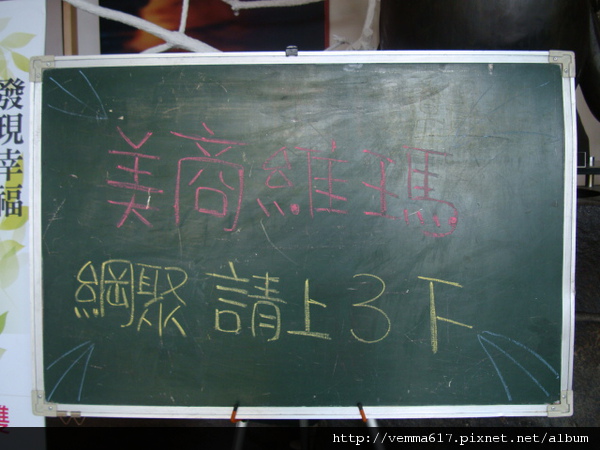 發現幸福
美商維瑪
網聚請上3下
http://vemma617.pixnet.net/album